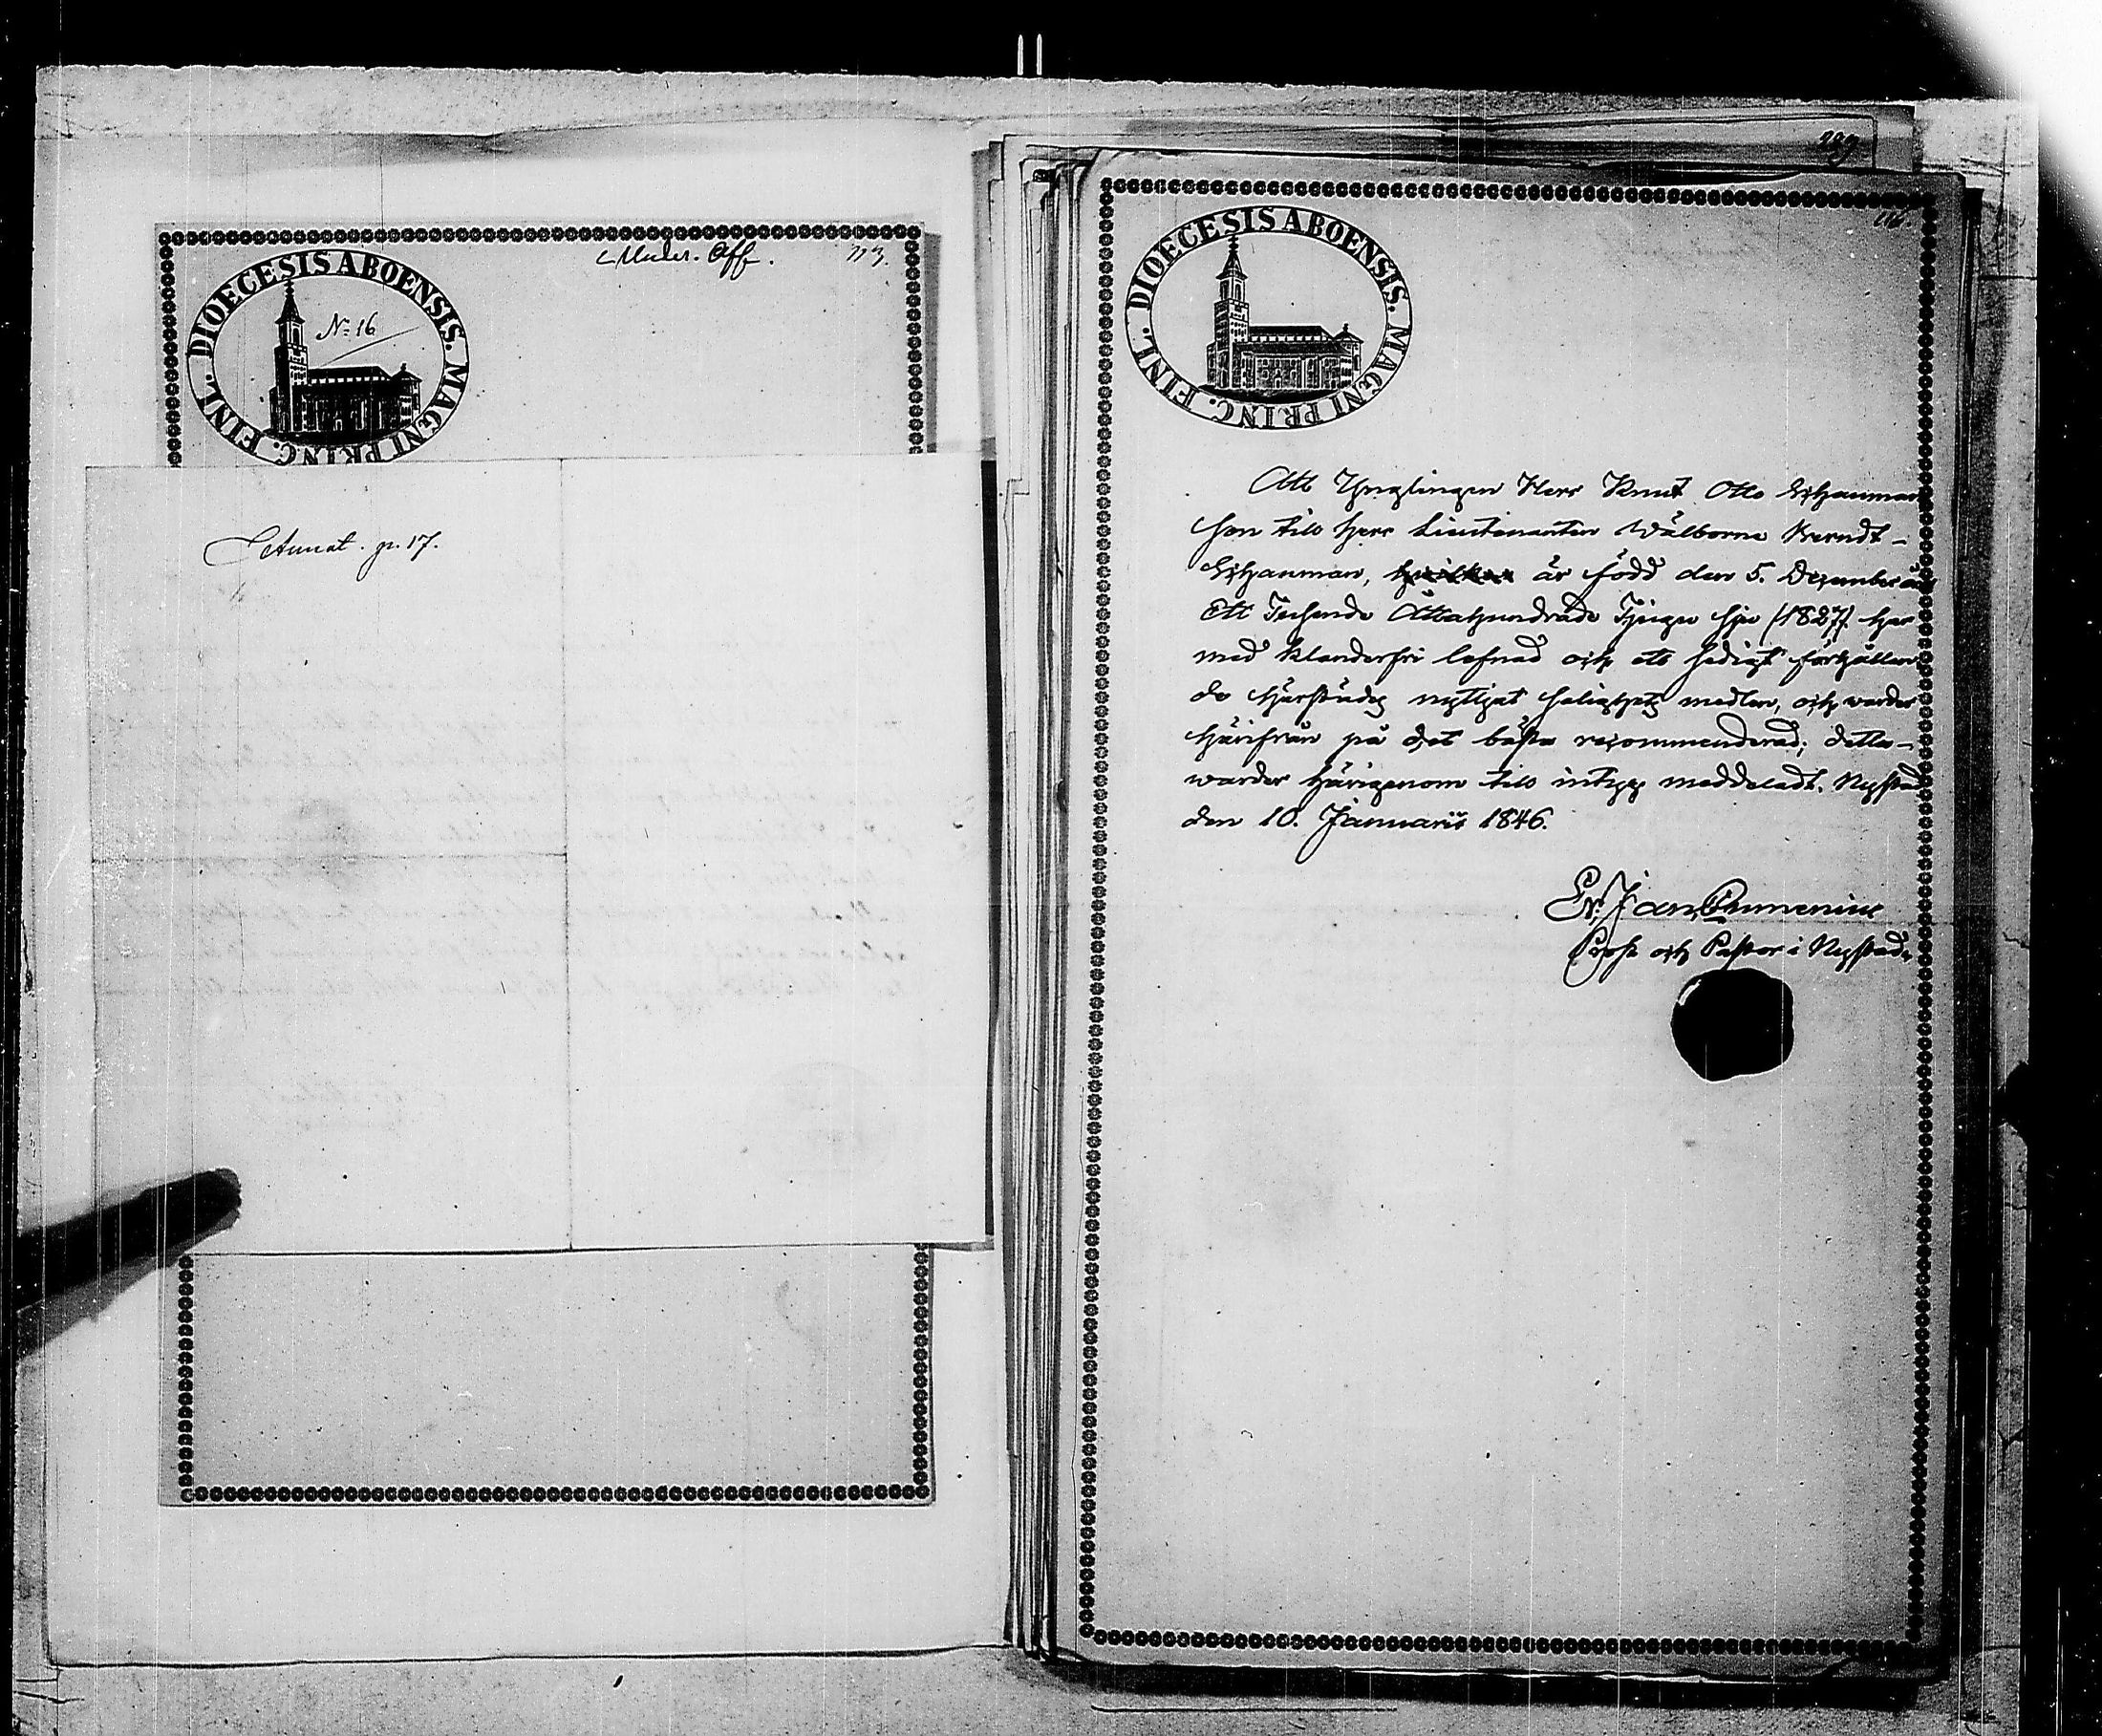 DIOECESIS ABOENSIS. MAGNI PRINC. FINL.
No 16
Acumat. p. 17.
229
DIOECESIS ABOENSIS. MAGNI PRINC. FINL.
Att Ynglingen Herr Knut Otto Schauman
son till Herr Lieutenanten Wälborne Berndt
Schauman, är född den 5. December år
Ett Tusende Åttahundrade Tjugu sju (1827) har
med klanderfri lefnad och ett sedigt förhållan
de härstädes nyttjat salighets medlen, och warder
härifrån på det bästa recommenderad; detta
warder härigenom till intyg meddeladt. Nystad
den 10. Januarii 1846.
Prost och Pastor i Nystad.